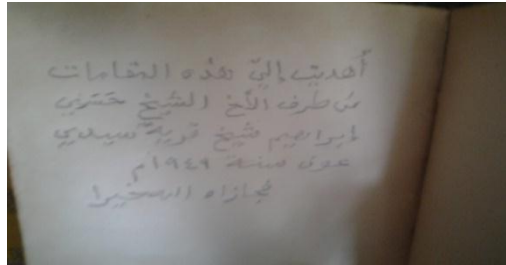 أهديت إليّ هذه المقامات
من طرف الأخ الشيخ حسني
إبراهيم شيخ قرية سيدي
عون سنة ١٩٤٩م
فجازاه الله خيرا